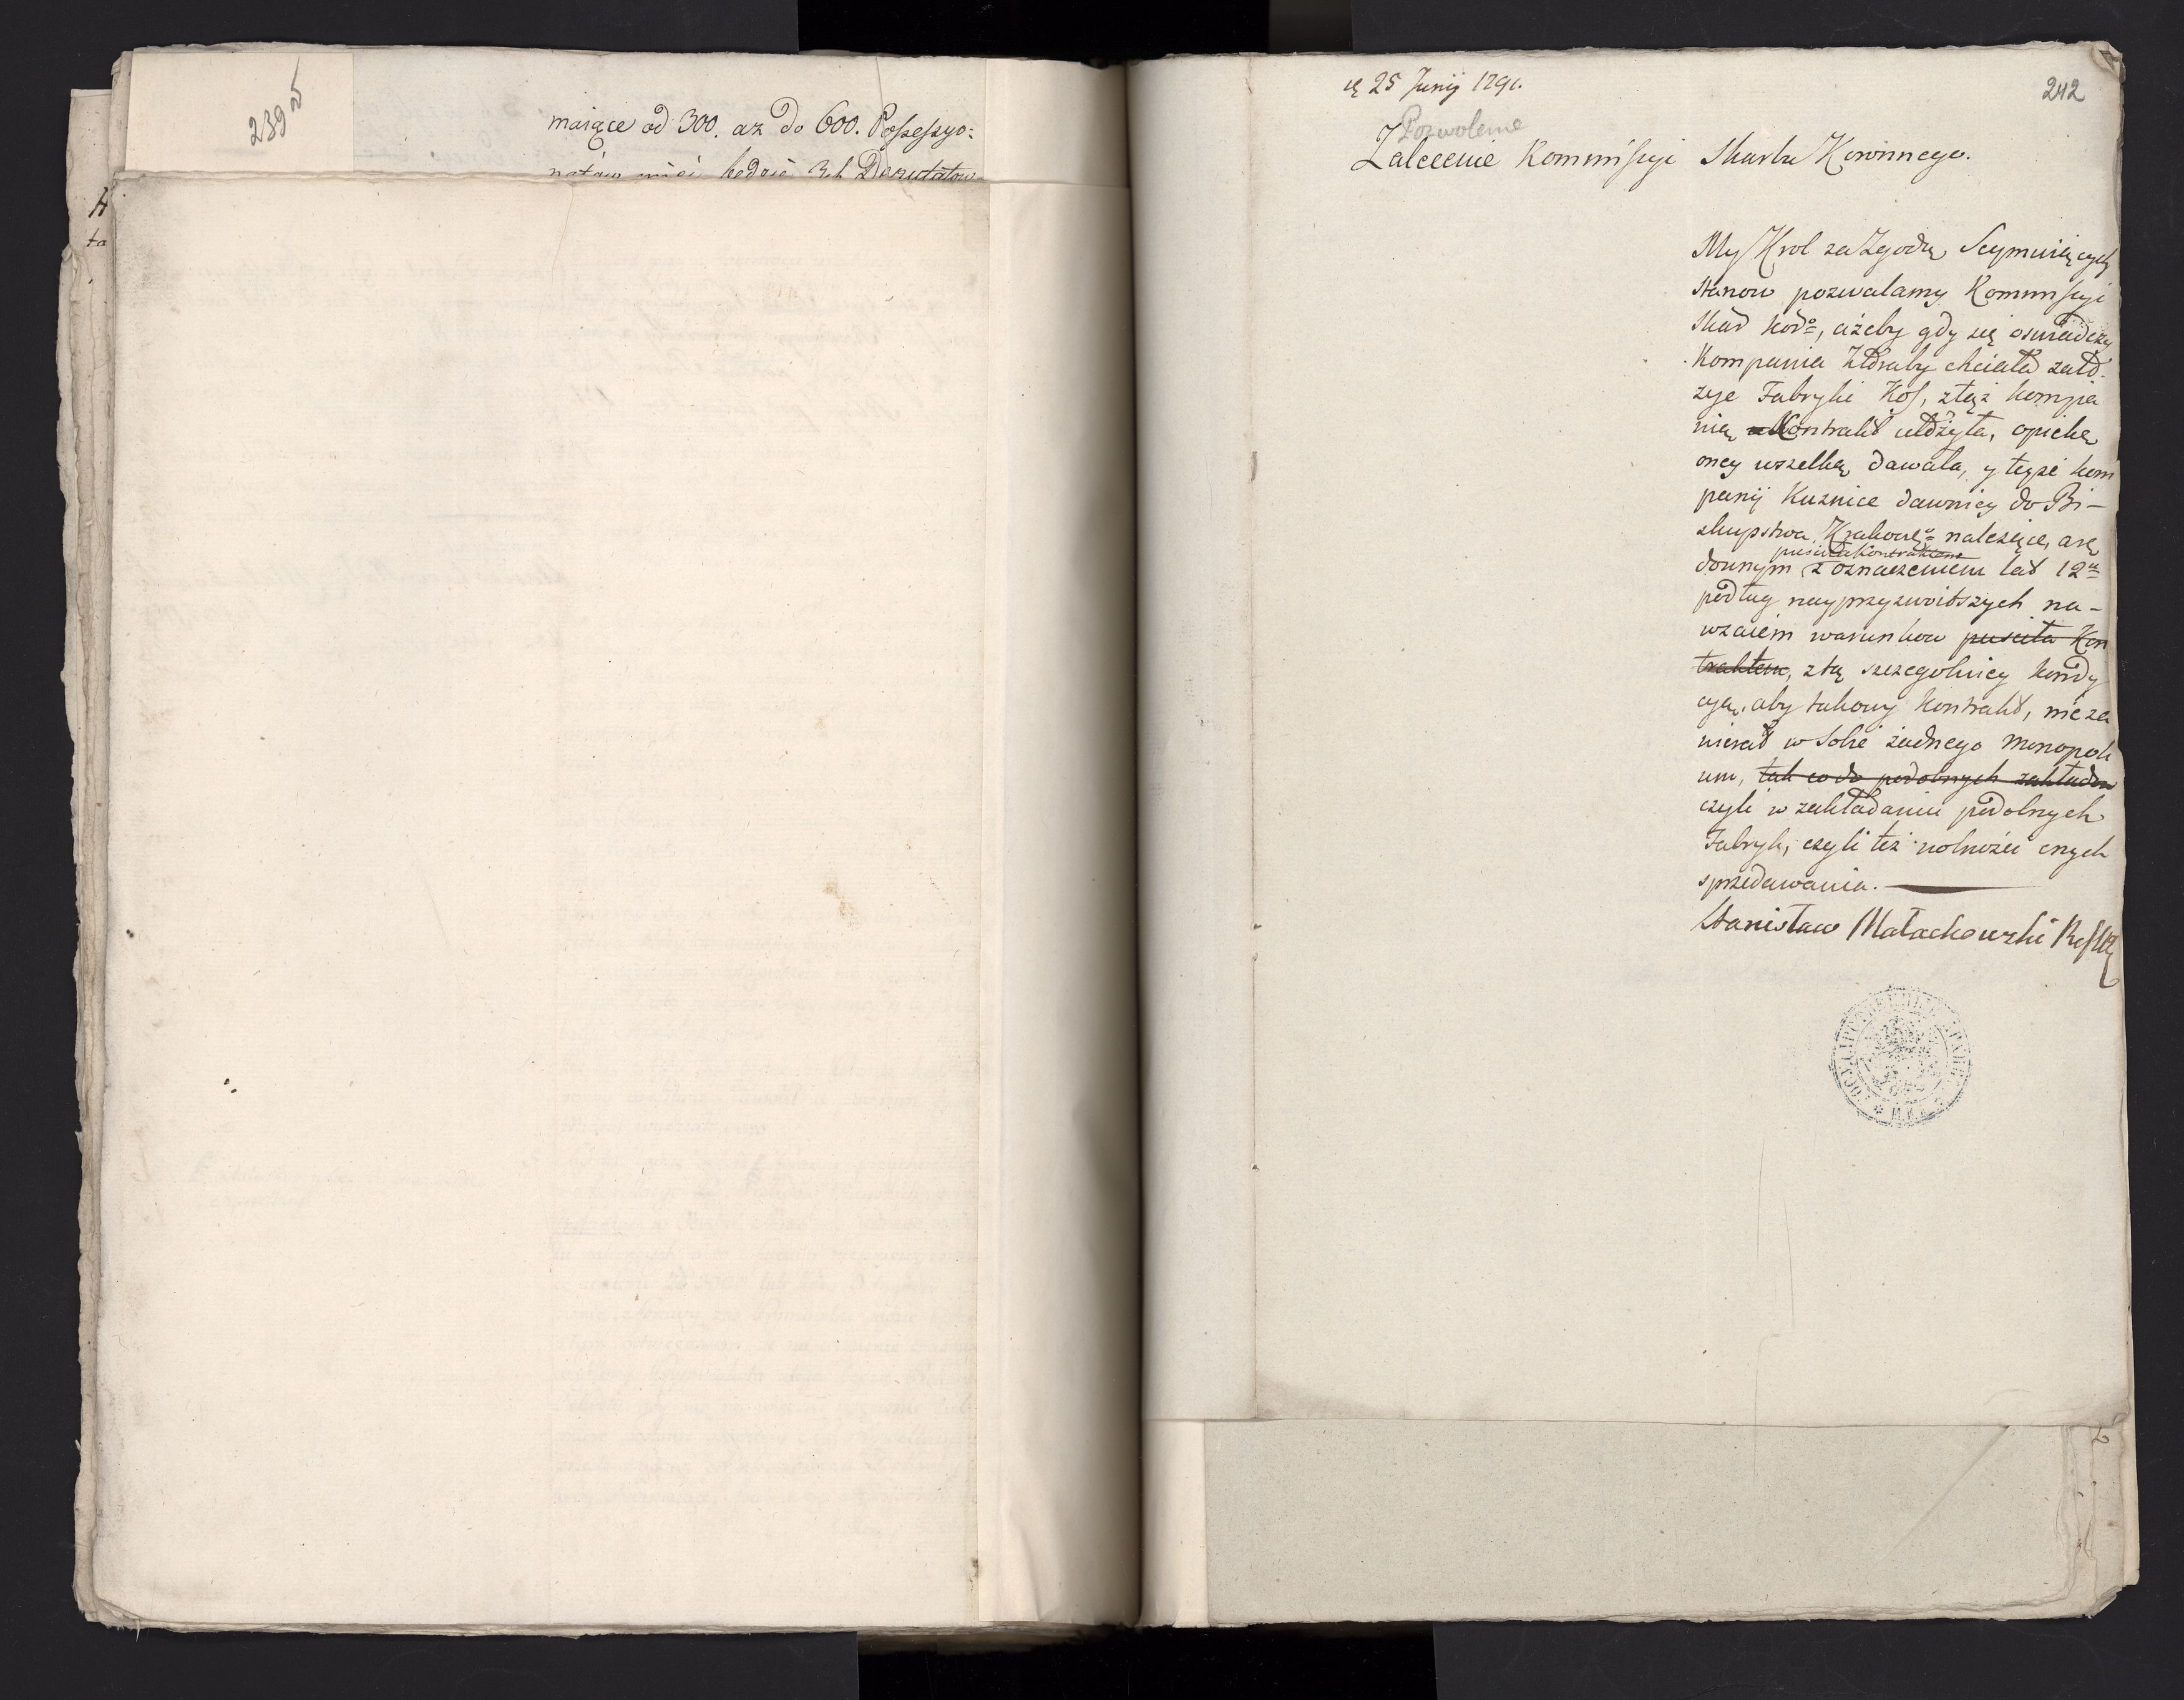 239v
maiące od 300. aż do 600. Possessyo:
natów mieć będzie 3ch Deputatow
ta
242
25 Junij 1791.
Pozwolenie
Zalecenie Kommissyi Skarbu Koronnego.
My Krol za Zgodą Seymuiących
Stanow pozwalamy Kommissyi
Skar Kor°, ażeby gdy się oswiadczy
Kompania któraby chciała zało
zyc Fabryki Kos, z tąż kompa
nią Kontrakt ułożyła, opiekę
oney wszelką dawała, y teyże kom
panij Kuznice dawniey do Bi-
skupstwa Krakowgo należące, arę
puściła kontraktem
downym z oznaczeniem lat 12u
podług nayprzyzwoitszych na-
wzaiem warunkow puściła Kon
traktem, z tą szczegolniey kondy
cyą, aby takowy kontrakt, nieza
wierał w Sobie żadnego monopoli
um, tak co do podobnych zakładow
czyli w zakładaniu podobnych
Fabryk, czyli też wolności onych
sprzedawania.
Stanisław Małachowski